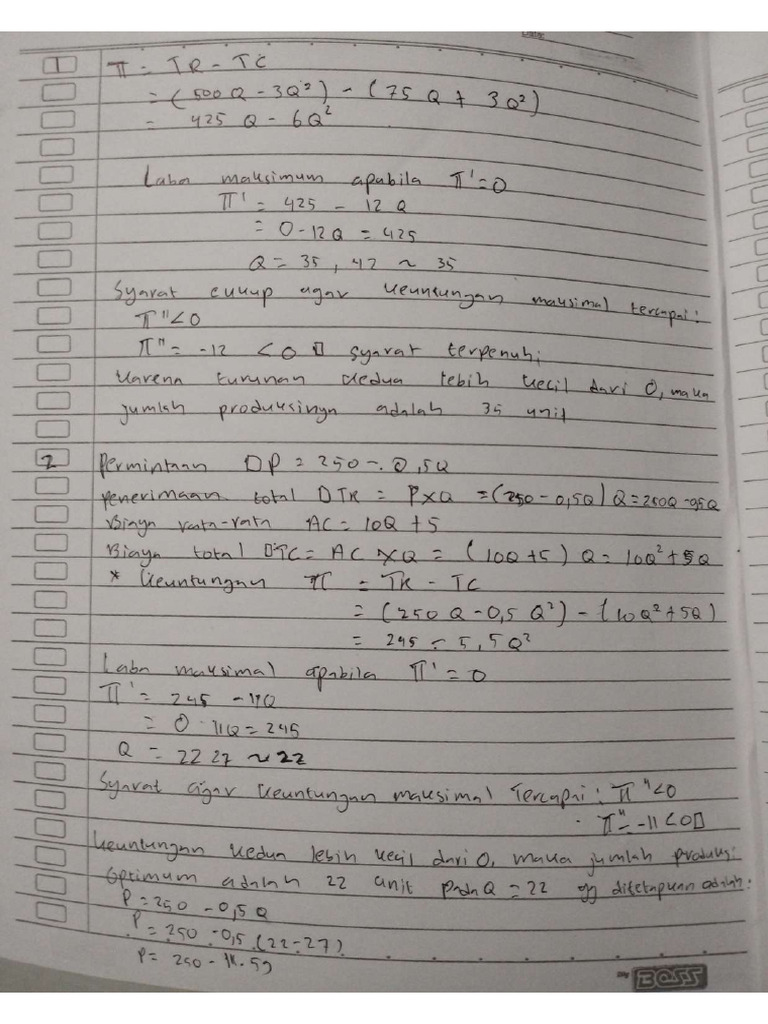 1 π = TR - TC
= (500Q - 3Q²) - (75Q + 3Q²)
= 425 Q - 6Q²
Laba maksimum apabila π' = 0
π' = 425 - 12 Q
= 0 - 12Q = 425
Q = 35,42 ~ 35
Syarat cukup agar keuntungan maksimal tercapai:
π" < 0
π" = -12 < 0 □ syarat terpenuhi
Karena turunan kedua lebih kecil dari 0, maka
jumlah produksinya adalah 35 unit
2 Permintaan DP = 250 - 0,5Q
penerimaan total DTR = P x Q = (250 - 0,5Q) Q = 250Q - 0,5Q
Biaya rata-rata AC = 10Q + 5
Biaya total DTC = AC x Q = (10Q + 5) Q = 10Q² + 5Q
* Keuntungan π = TR - TC
= (250Q - 0,5 Q²) - (10Q² + 5Q)
= 245 - 5,5Q²
Laba maksimal apabila π' = 0
π' = 245 - 11Q
= 0 11Q = 245
Q = 22 27 ~ 22
Syarat agar keuntungan maksimal Tercapai: π" < 0
π" = -11 < 0 □
Keuntungan kedua lebih kecil dari 0, maka jumlah produksi
Optimum adalah 22 unit pada Q = 22 yg ditetapkan adalah:
P = 250 - 0,5 Q
P = 250 - 0,5 (22-27)
P = 250 -
BOSS